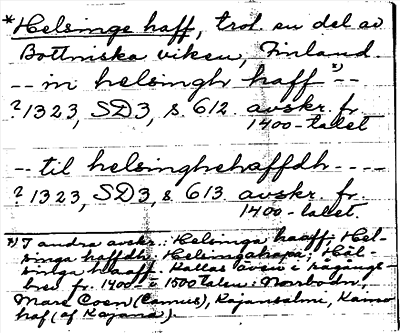 *Helsinge haff, trol. en del av
Bottniska viken, Finland
-- in helsingh haff x) --
? 1323, SD3, s. 612. avskr. fr.
1400-talet
-- til helsinghehaffdh ----
? 1323, SD3, s 613. avskr. fr.
1400-talet.
x) I andra avskr.: Helsinga haaff; Hel-
singa haffdh; Helsinga hapa; Häl-
singa haaff. Kallas även i
brev fr. 1400- o 1500talen: Norrbodn,
Mare Coen (Canus), Kajanselmi,
haf (af Kajana).